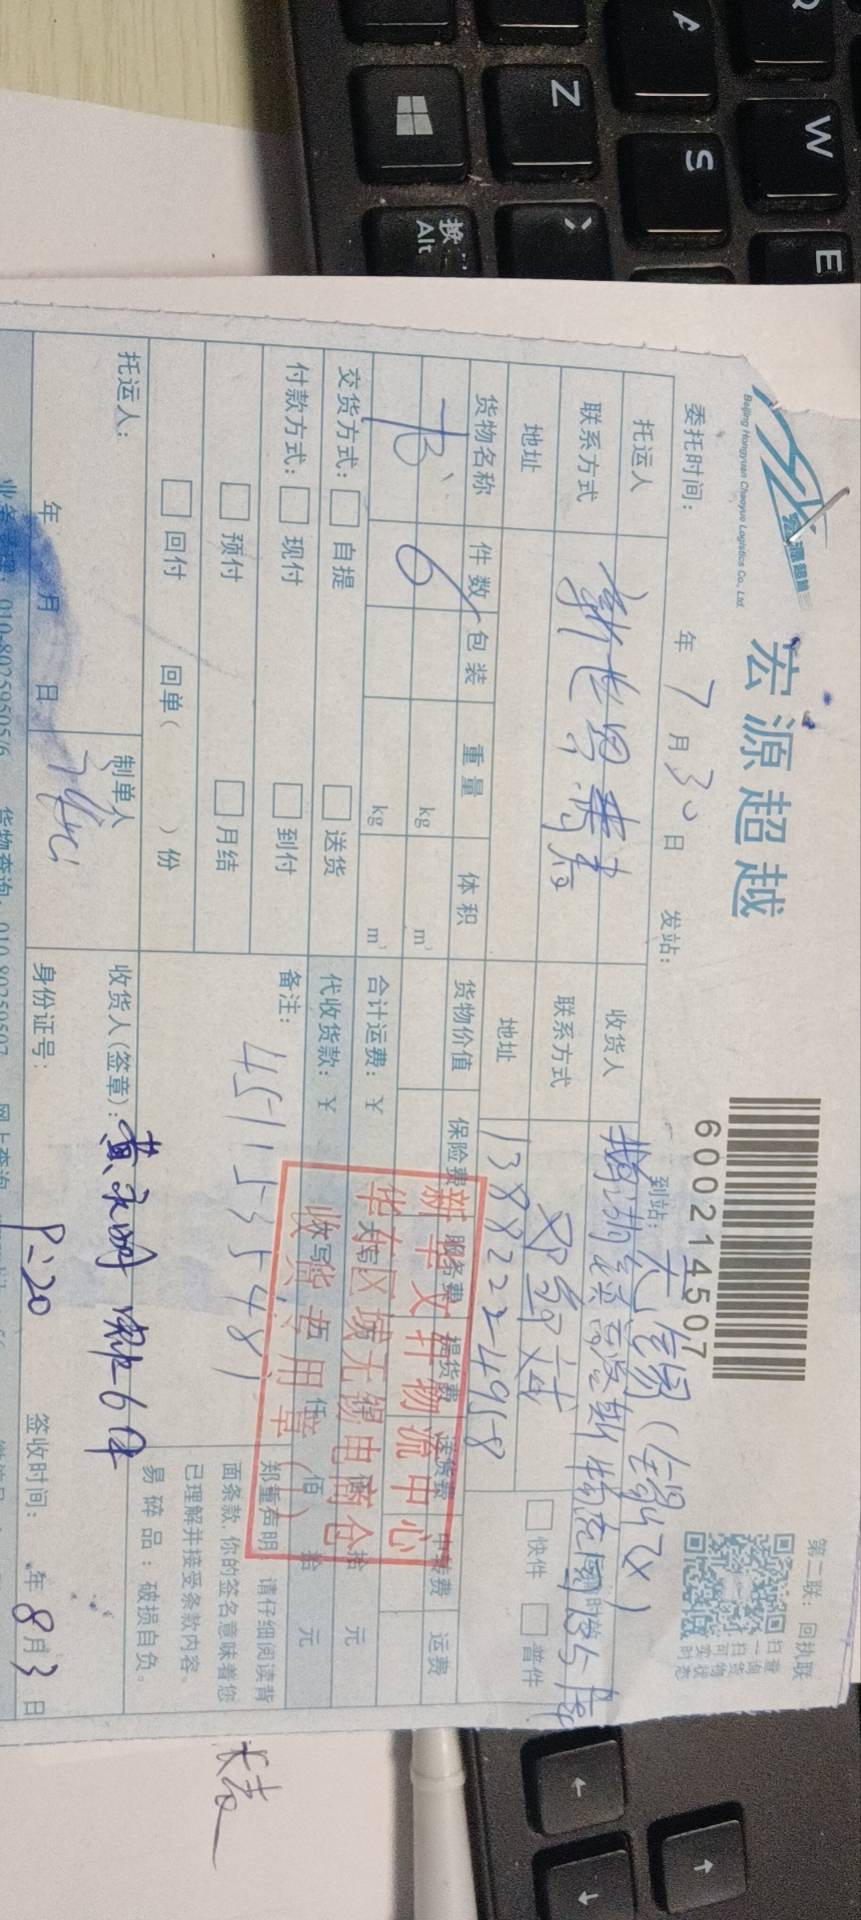 宏源超越
Beijing Hongyuan Chaoyue Logistics Co., Ltd.
第二联：回执联
6 0 0 2 1 4 5 0 7
委托时间： 年 7 月 30 日 发站： 到站： 无锡
托运人 新世界 收货人
联系方式 联系方式
地址 地址 13882224958
□快件 □普件
货物名称 件数 包装 重量 体积 货物价值 保险费 服务费 提货费 送货费 中转费 运费
书 6 kg m³
kg m³ 合计运费：￥ 拾 元
交货方式：□自提 □送货 代收货款：￥ 佰 拾 元
付款方式：□现付 □到付 备注：
□预付 □月结 4511535481
□回付 回单（ ）份
郑重声明：请仔细阅读背
面条款，你的签名意味着您
已理解并接受条款内容。
易碎品：破损自负。
新华文轩物流中心
华东区域无锡电商仓
收货专用章
托运人： 制单人 收货人(签章)：黄永明
年 月 日 身份证号： 签收时间： 年 8 月 3 日
010-80259505/6 货物查询：010-80259507 网上查询
Q
W
E
A
S
Z
Alt
换